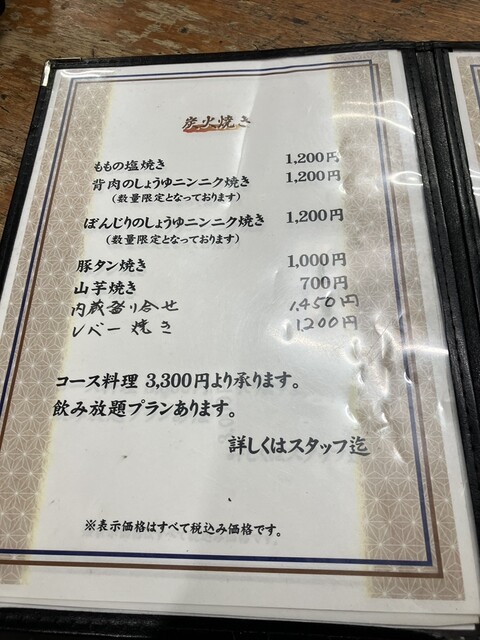 炭火焼き
ももの塩焼き 1,200円
背肉のしょうゆニンニク焼き 1,200円
(数量限定となっております)
ぼんじりのしょうゆニンニク焼き 1,200円
(数量限定となっております)
豚タン焼き 1,000円
山芋焼き 700円
内蔵盛り合せ 1,450円
レバー焼き 1,200円
コース料理 3,300円より承ります。
飲み放題プランあります。
詳しくはスタッフ迄
※表示価格はすべて税込み価格です。